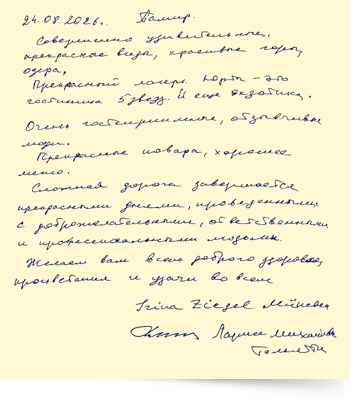 24.08.2026г. Памир.
Совершенно удивительные,
прекрасные виды, красивые горы,
озера.
Прекрасный лагерь Юрты - это
гостиница 5 звезд. И еще экзотика.
Очень гостеприимные, отзывчивые
люди.
Прекрасные повара, хорошее
меню.
Сложная дорога завершается
прекрасными днями, проведенными
с доброжелательными, ответственными
и профессиональными людьми.
Желаем вам всем доброго здоровья,
процветания и удачи во всем
Irina Ziegel München
Лариса Михайловна